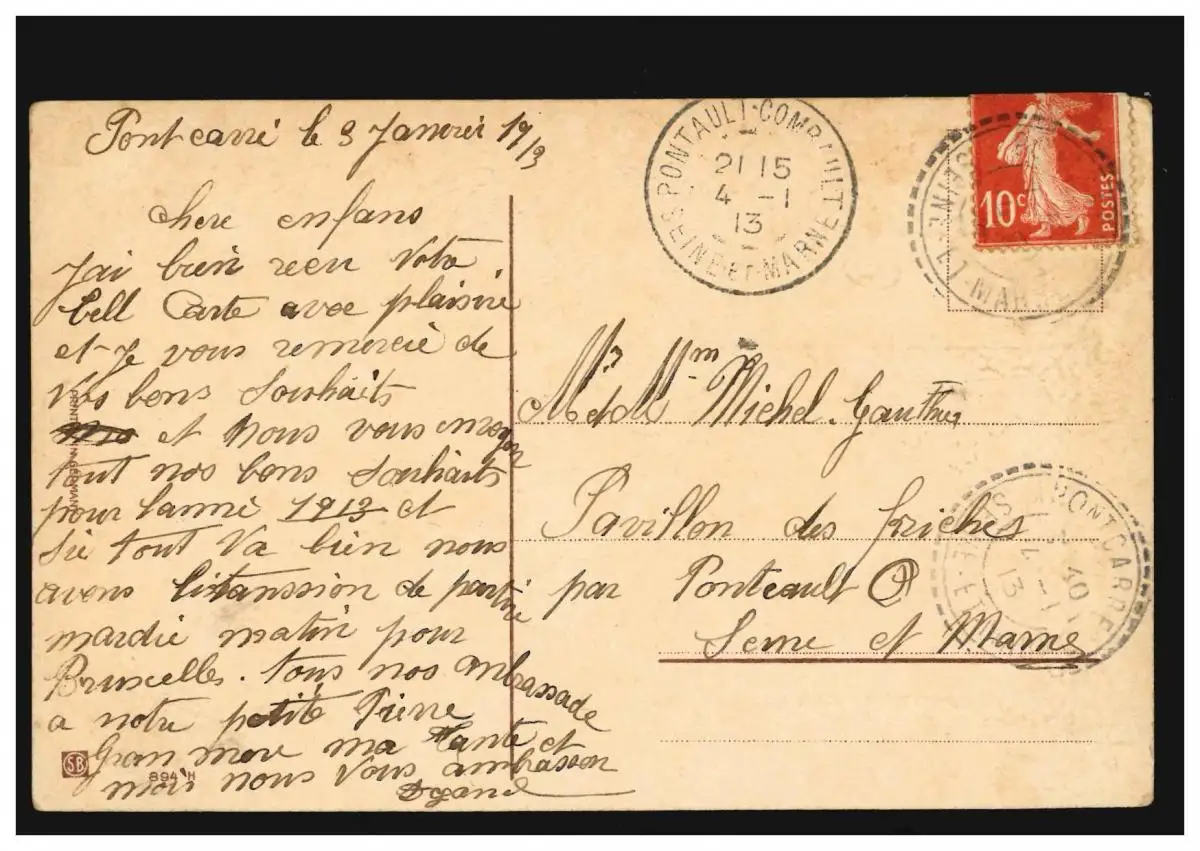 Pontcarré le 3 Janvrei 1913
chere enfans
J'ai bien recu Votre
bell Carte avec plaisire
et Je vous remercie de
Vos bons Souhaits
et Nous vous envoyon
tout nos bons Souhaits
pour l'anné 1913 et
Sie tout Va bien nous
avons l'itanssion de partire
mardie matin pour
Bruxelles. tous nos ambrassade
a notre petite Pierre
Gran mere ma tante et
moi nous Vous ambrasson
PRINTED IN GERMANY
SB
894 H
PONTAULT-COMBAULT
21 15
4 -1
13
SEINE-ET-MARNE
SEINE-ET-MARNE
10c
POSTES
Mr et Mme Michel Gauthier
Pavillon des friches
par Ponteault
Seine et Marne
PONTCARRÉ
40
4 -1
13
SEINE-ET-MARNE